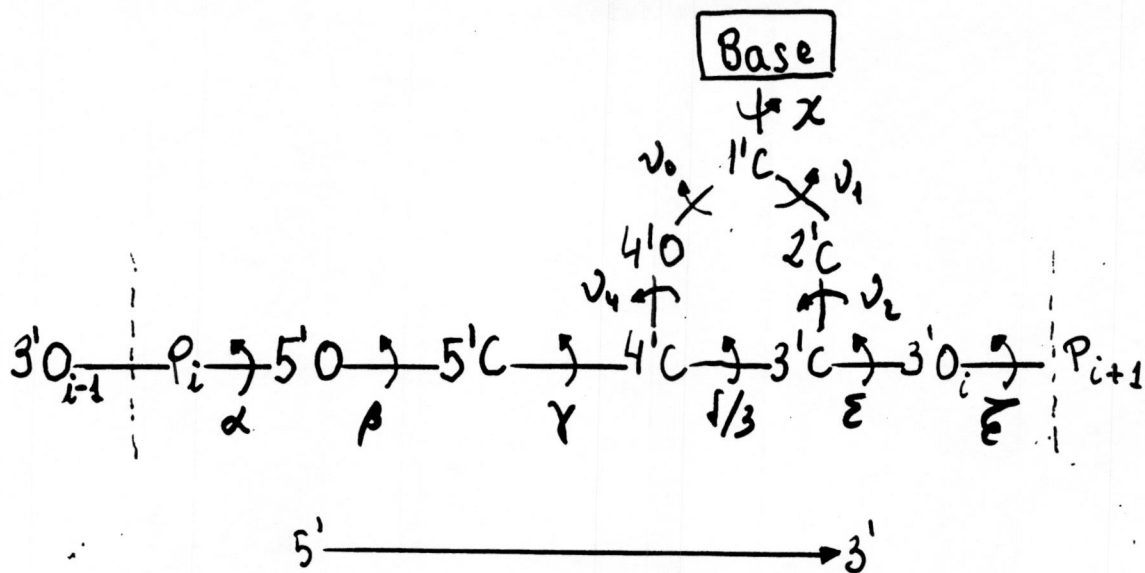 Base
χ
ν₀ 1'C ν₁
4'O 2'C
ν₄ ν₂
3'O i-1 P i 5'O 5'C 4'C 3'C 3'O i P i+1
α β γ δ/3 ε ζ
5' 3'